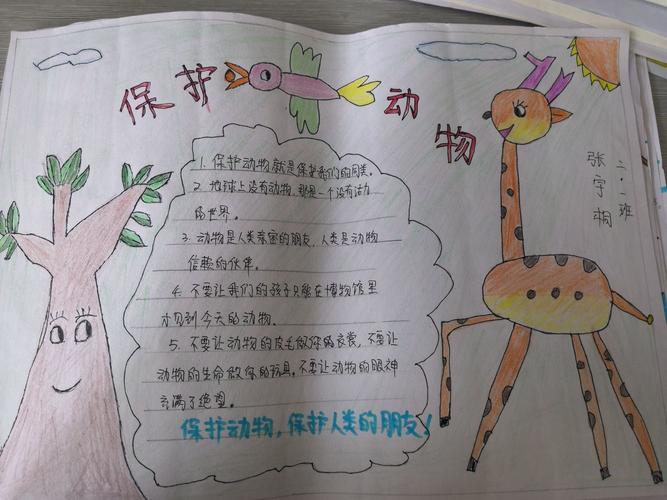 保护动物
二·1班
张宇桐
1. 保护动物就是保护我们的同类。
2. 地球上没有动物,那是一个没有活力
的世界。
3. 动物是人类亲密的朋友,人类是动物
信赖的伙伴。
4. 不要让我们的孩子只能在博物馆里
才见到今天的动物。
5. 不要让动物的皮毛做你的衣裳,不要让
动物的生命做你的玩具。不要让动物的眼神
充满了绝望。
保护动物,保护人类的朋友!